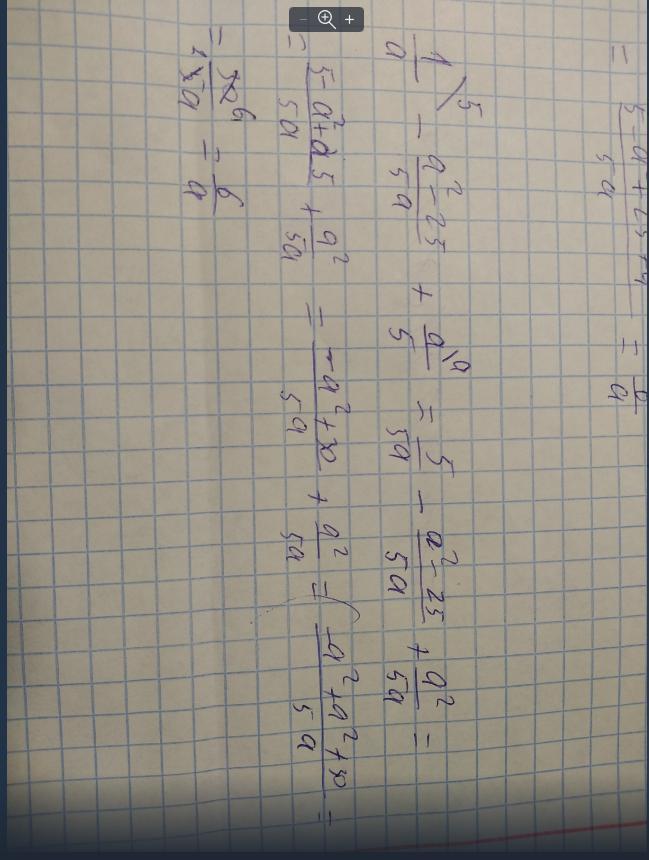 = 5-a²+25+a²/5a = 6/a
1\5/a - a²-25/5a + a\a/5 = 5/5a - a²-25/5a + a²/5a =
= 5-a²+25/5a + a²/5a = -a²+30/5a + a²/5a = -a²+a²+30/5a =
= 30 6/1 5a = 6/a